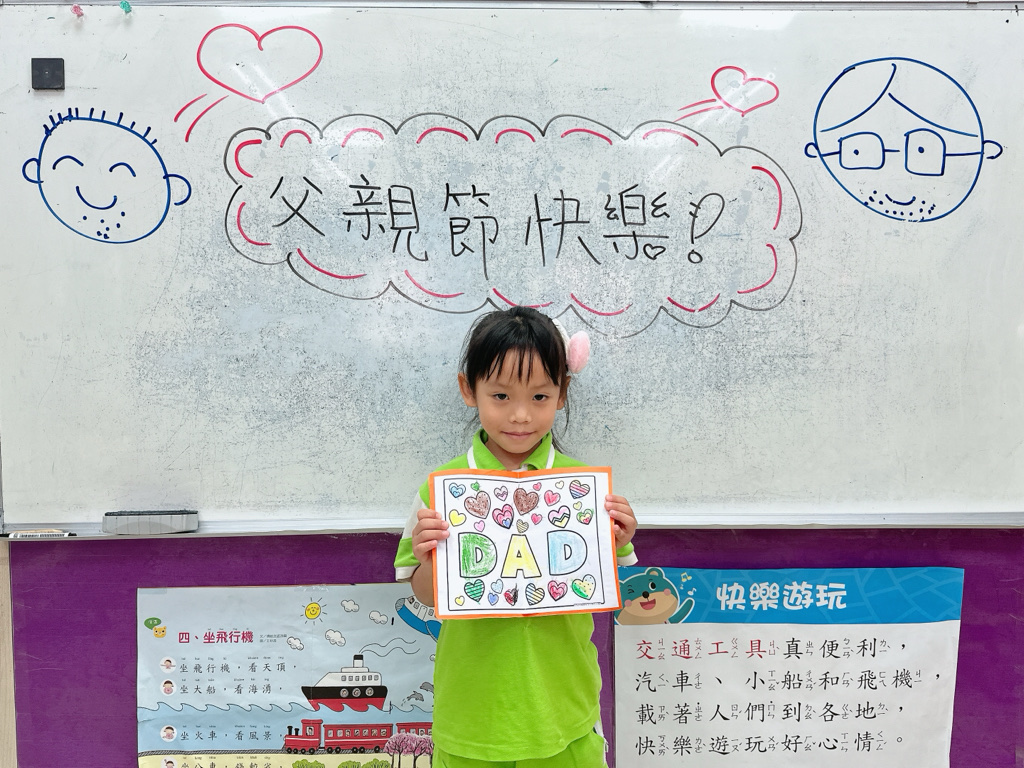 父親節快樂!
DAD
四、坐飛行機
坐飛行機，看天頂，
坐大船，看海湧，
坐火車，看風景，
快樂遊玩
交通工具真便利，
汽車、小船和飛機，
載著人們到各地，
快樂遊玩好心情。